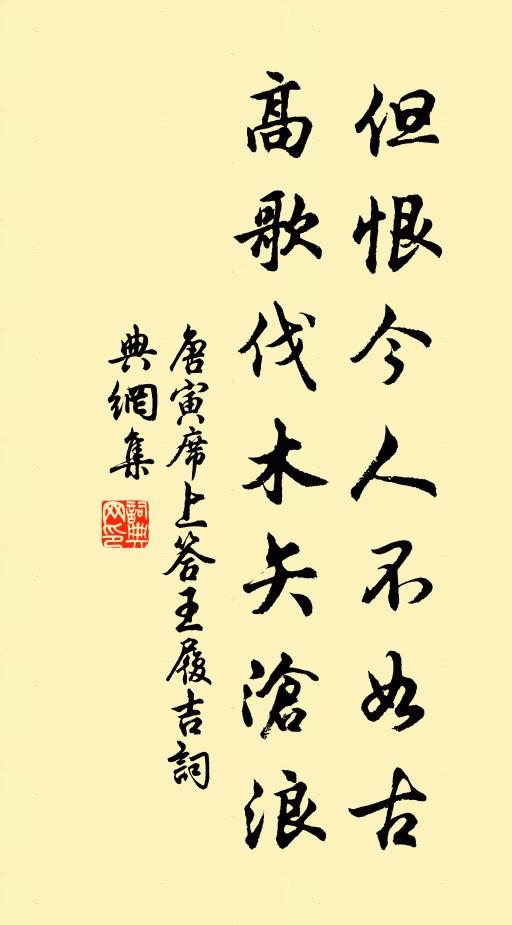 但恨今人不如古
高歌伐木矢滄浪
唐寅席上答王履吉詞
典網集
詞典
网印